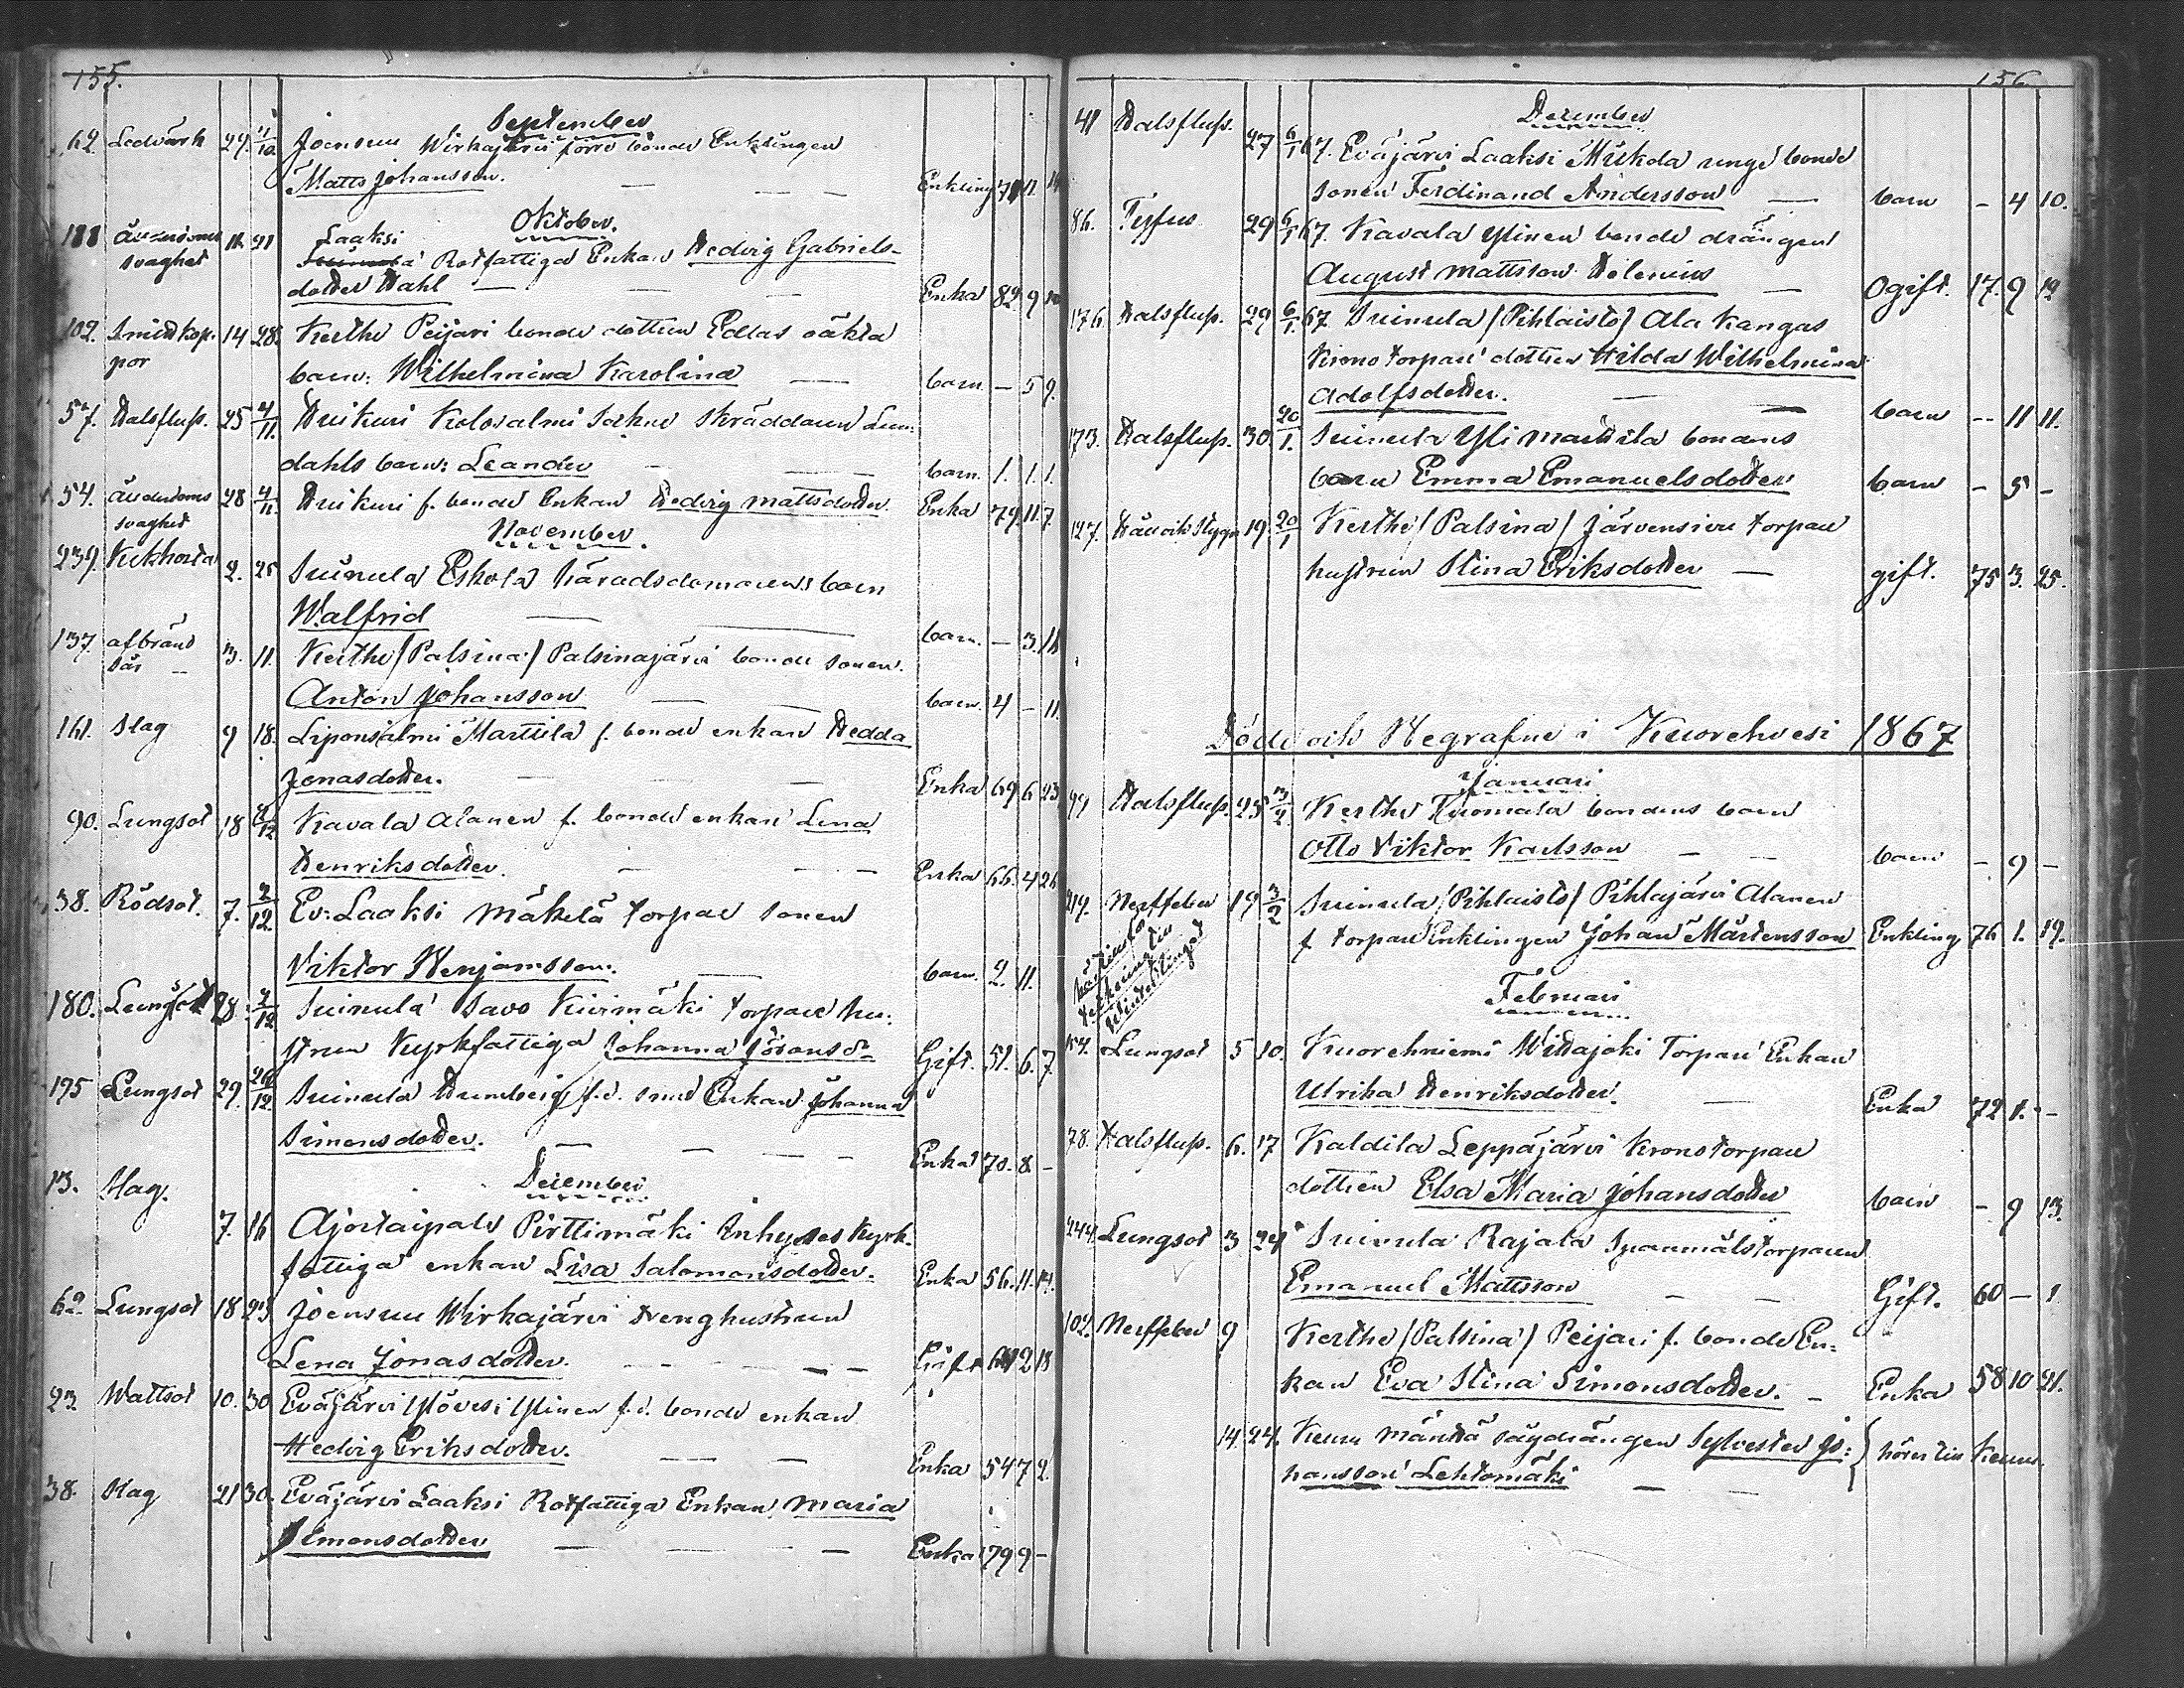 155.
September
62. Ledvärk 29. 11/10 Joensuu Wirkajärvi förre bonde Enklingen
Matts Johansson. Enkling 11
Oktober.
188 ålderdoms 11. 21 Laaksi
svaghet Rotfattiga Enkan Hedvig Gabriels-
dotter Dahl Enka 82 9
102. Smittkop- 14 28. Kerthe Peijari bonde dottren Edlas oäkta
por barn: Wilhelmina Karolina barn. – 5 9.
57. Halsfluss. 25 4/11. Huikuri Kolosalmi Sockne skräddaren Lun-
dahls barn: Leander barn. 1. 1. 1.
54. ålderdoms 28 4/11. Huikuri f. bonde Enkan Hedvig Mattsdotter Enka 79. 11. 7.
svaghet
November.
239. Kikhosta 2. 25 Suinula Eskola häradsdomarens barn
Walfrid barn. – 3. 16
137. afbränd 3. 11. Kerthe /Palsina/ Palsinajärvi bonde sonen.
sår – Anton Johansson barn. 4 – 11.
161. Slag 9 18. Liponsalmi Marttila f. bonde enkan Hedda
Jonasdotter. Enka 69 6 23
90. Lungsot 18 2/12 Kavala Alanen f. bonde enkan Lena
Henriksdotter. Enka 66. 4 26
38. Rödsot. 7. 2/12. Ev: Laaksi Mäkelä torpare sonen
Viktor Benjamsson. barn. 2. 11.
180. Lungsot 28 2/12 Suinula Savo Kiirimäki torpare hu-
strun Kyrkfattiga Johanna Göransd: Gift. 51. 6. 7.
195 Lungsot 29. 26/12. Suinula Humberg f.d. smed Enkan Johanna
Simonsdotter. Enka 70. 8. –
December
13. Slag. 7. 16 Ajostaipale Pirttimäki Inhyses kyrk-
fattiga enkan Lisa Salomonsdotter. Enka 56. 11. 14.
62 Lungsot 18 23 Joensuu Wirkajärvi drenghustrun
Lena Jonasdotter. Gift 2 18
23 Wattsot 10. 30 Eväjärvi Ylövesi Ylinen f.d. bonde enkan
Hedvig Eriksdotter. Enka 54 7 2.
38. Slag 21 30. Eväjärvi Laaksi Rotfattiga Enkan Maria
Simonsdotter Enka 79 9 –
156
December
41 Halsfluss. 27 6/1 67. Eväjärvi Laaksi Mikola unge bonde
sonen Ferdinand Andersson barn – 4 10.
86. Tyfus 29 6/1 67. Kavala Ylinen bonde drängen
August Mattsson Helenius Ogift. 17. 9 12
176. Halsfluss. 29 6/1. 67 Suinula /Pihlaisto/ Ala Kangas
Krono torpare dottren Hilda Wilhelmina
Adolfsdotter. barn – 11 11.
173. Halsfluss. 30. 20/1. Suinula Yli Marttila bondens
barn Emma Emanuelsdotter barn – 5 –
127. Håll och Stygn 19. 20/1 Kerthe /Palsina/ Järvensivu torpare
hustrun Stina Eriksdotter gift. 75 3. 25.
Döde och Begrafne i Kuorehvesi 1867
Januari
99 Halsfluss. 25 3/2. Kerthe Tuomala bondens barn
Otto Viktor Karlsson barn – 9 –
219. Nerffeber 19 3/2 Suinula /Pihlaisto/ Pihlajärvi Alanen
f. torpare Enklingen Johan Mårtensson Enkling 76 1. 19.
Februari
154. Lungsot 5 10. Kuorehniemi Wittajoki Torpare Enkan
Ulrika Henriksdotter. Enka 72 1. –
78. Halsfluss. 6. 17 Kaldila Leppäjärvi Kronotorpare
dottren Elsa Maria Johansdotter barn – 9 13.
244. Lungsot 3 24 Suinula Rajala Spanmålstorparen
Emanuel Mattsson Gift. 60 – 1
102. Nerffeber 9 Kerthe /Palsina/ Peijari f. bonde En-
kan Eva Stina Simonsdotter. Enka 58 10 21.
14 24. Keuru Mänttä sågdrängen Sylvester Jo-
hansson Lehtomäki hörer till Keuru.